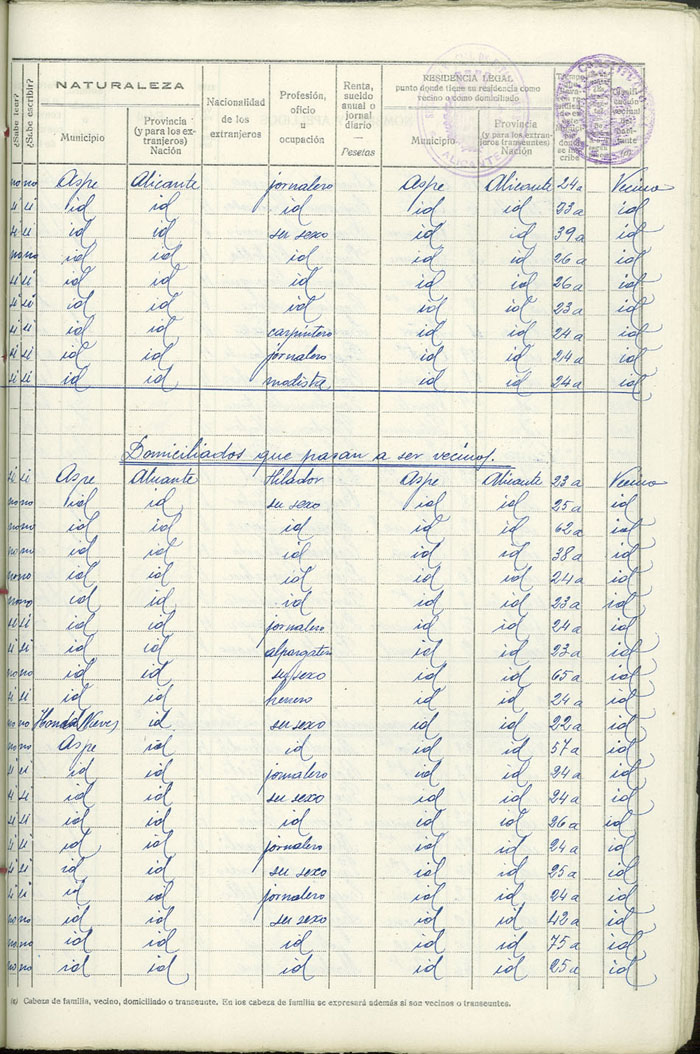 ¿Sabe leer?
¿Sabe escribir?
NATURALEZA
Municipio
Provincia (y para los extranjeros) Nación
Nacionalidad de los extranjeros
Profesión, oficio u ocupación
Renta, sueldo anual o jornal diario — Pesetas
RESIDENCIA LEGAL
punto donde tiene su residencia como vecino o como domiciliado
Municipio
Provincia (y para los extranjeros transeuntes) Nación
ALICANTE
no no Aspe Alicante jornalero Aspe Alicante 24 a Vecino
si si id id id id id 33 a id
si si id id su sexo id id 39 a id
no no id id id id id 26 a id
si si id id id id id 26 a id
si si id id id id id 23 a id
si si id id carpintero id id 24 a id
si si id id jornalero id id 24 a id
si si id id modista id id 24 a id
Domiciliados que pasan a ser vecinos.
si si Aspe Alicante Hilador Aspe Alicante 23 a Vecino
no no id id su sexo id id 25 a id
no no id id id id id 62 a id
no no id id id id id 38 a id
no no id id id id id 24 a id
no no id id id id id 23 a id
si si id id jornalero id id 24 a id
si si id id alpargatero id id 23 a id
no no id id su sexo id id 65 a id
si si id id herrero id id 24 a id
no no Hondón Nieves id su sexo id id 22 a id
no no Aspe id id id id 57 a id
si si id id jornalero id id 24 a id
si si id id su sexo id id 24 a id
si si id id id id id 26 a id
si si id id jornalero id id 24 a id
si si id id su sexo id id 25 a id
si si id id jornalero id id 24 a id
no no id id su sexo id id 42 a id
no no id id id id id 75 a id
no no id id id id id 25 a id
Cabeza de familia, vecino, domiciliado o transeunte. En los cabeza de familia se expresará además si son vecinos o transeuntes.